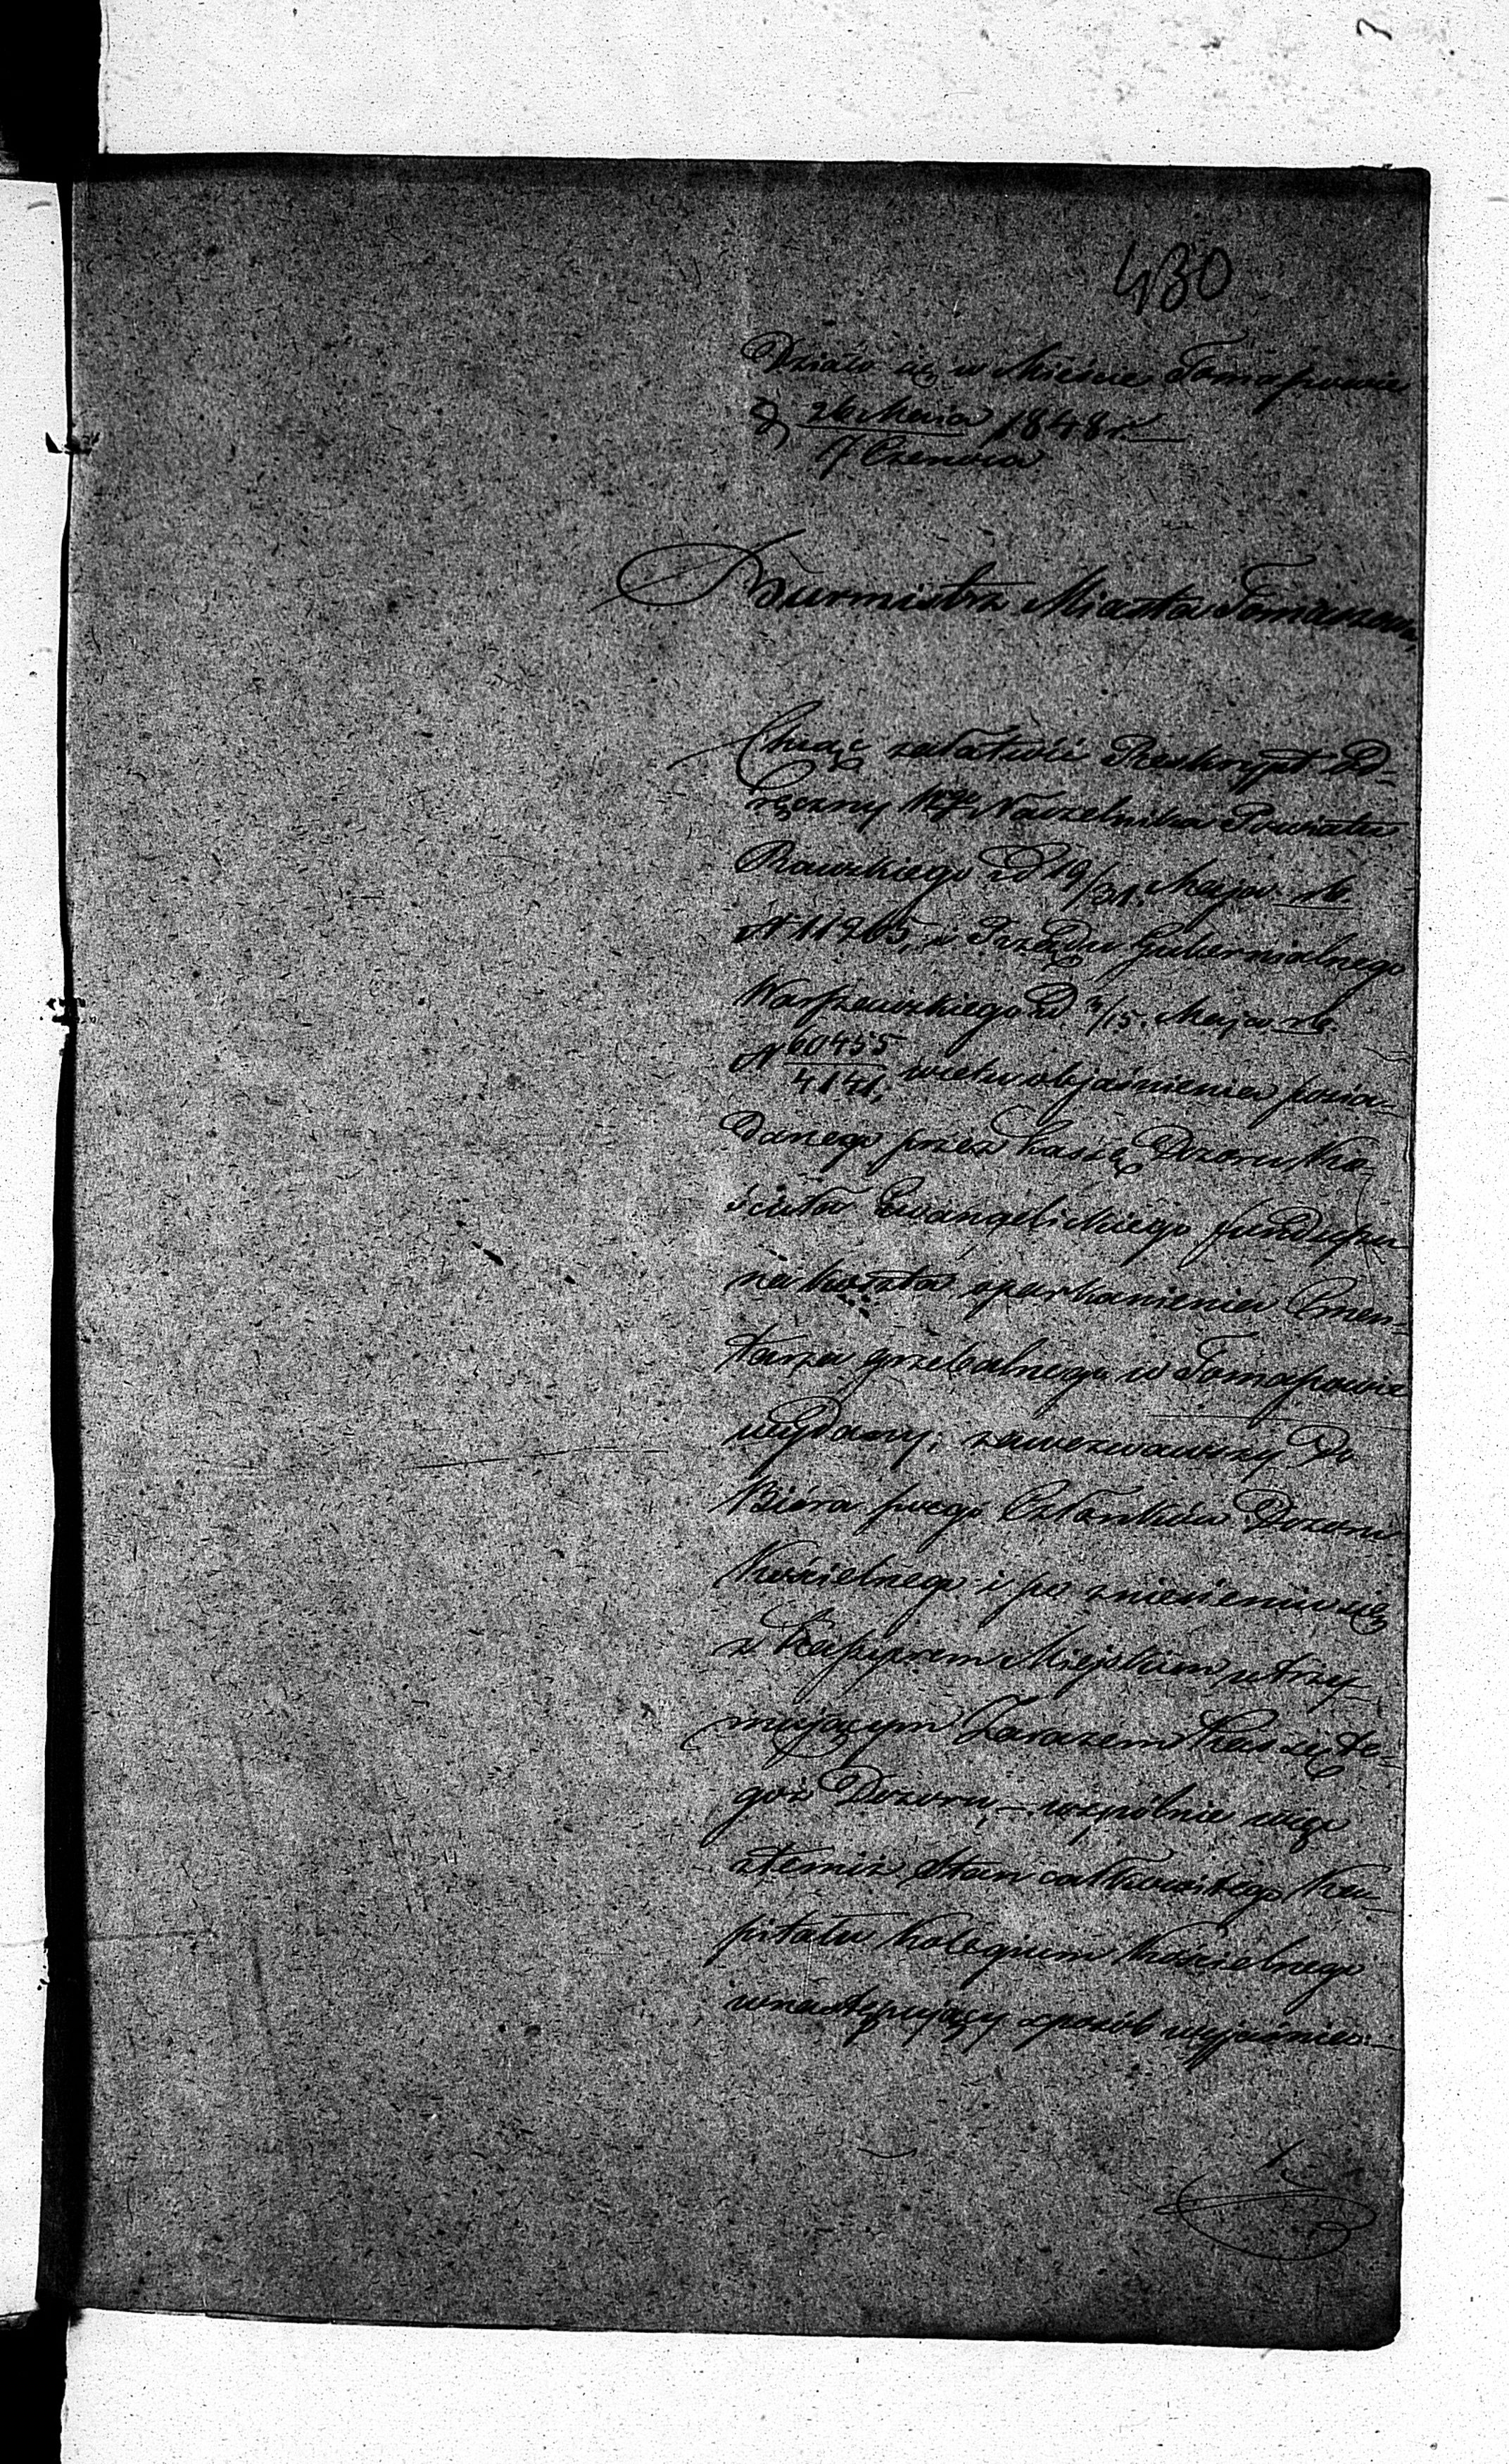 430
Działo się w Mieście Tomaszowie
d 26 Maja 1848 r.
7 Czerwca
Burmistrz Miasta Tomaszowa
Chcąc załatwić Reskrypt Od-
ręczny Wgo Naczelnika Powiatu
Rawskiego z d 19/31. Maja rb.
N 11265, i Rządu Gubernialnego
Warszawskiego d 3/15. Maja rb.
N 60455
4141, w celu objaśnienia posia-
danego przez Kassę Dozoru Ko-
ścioła Ewangelickiego funduszu
na koszta oparkanienia Cmen-
tarza grzebalnego w Tomaszowie
wydany; zawezwawszy do
Bióra swego Członków Dozoru
Kościelnego i po zniesieniu się
z Kassyerem Miejskim utrzy-
mującym zarazem Kassę te-
goż Dozoru, – wspólnie więc
z temiż Stan całkowitego Ka-
pitału Kolegium Kościelnego
w następujący sposób wyjaśnia: